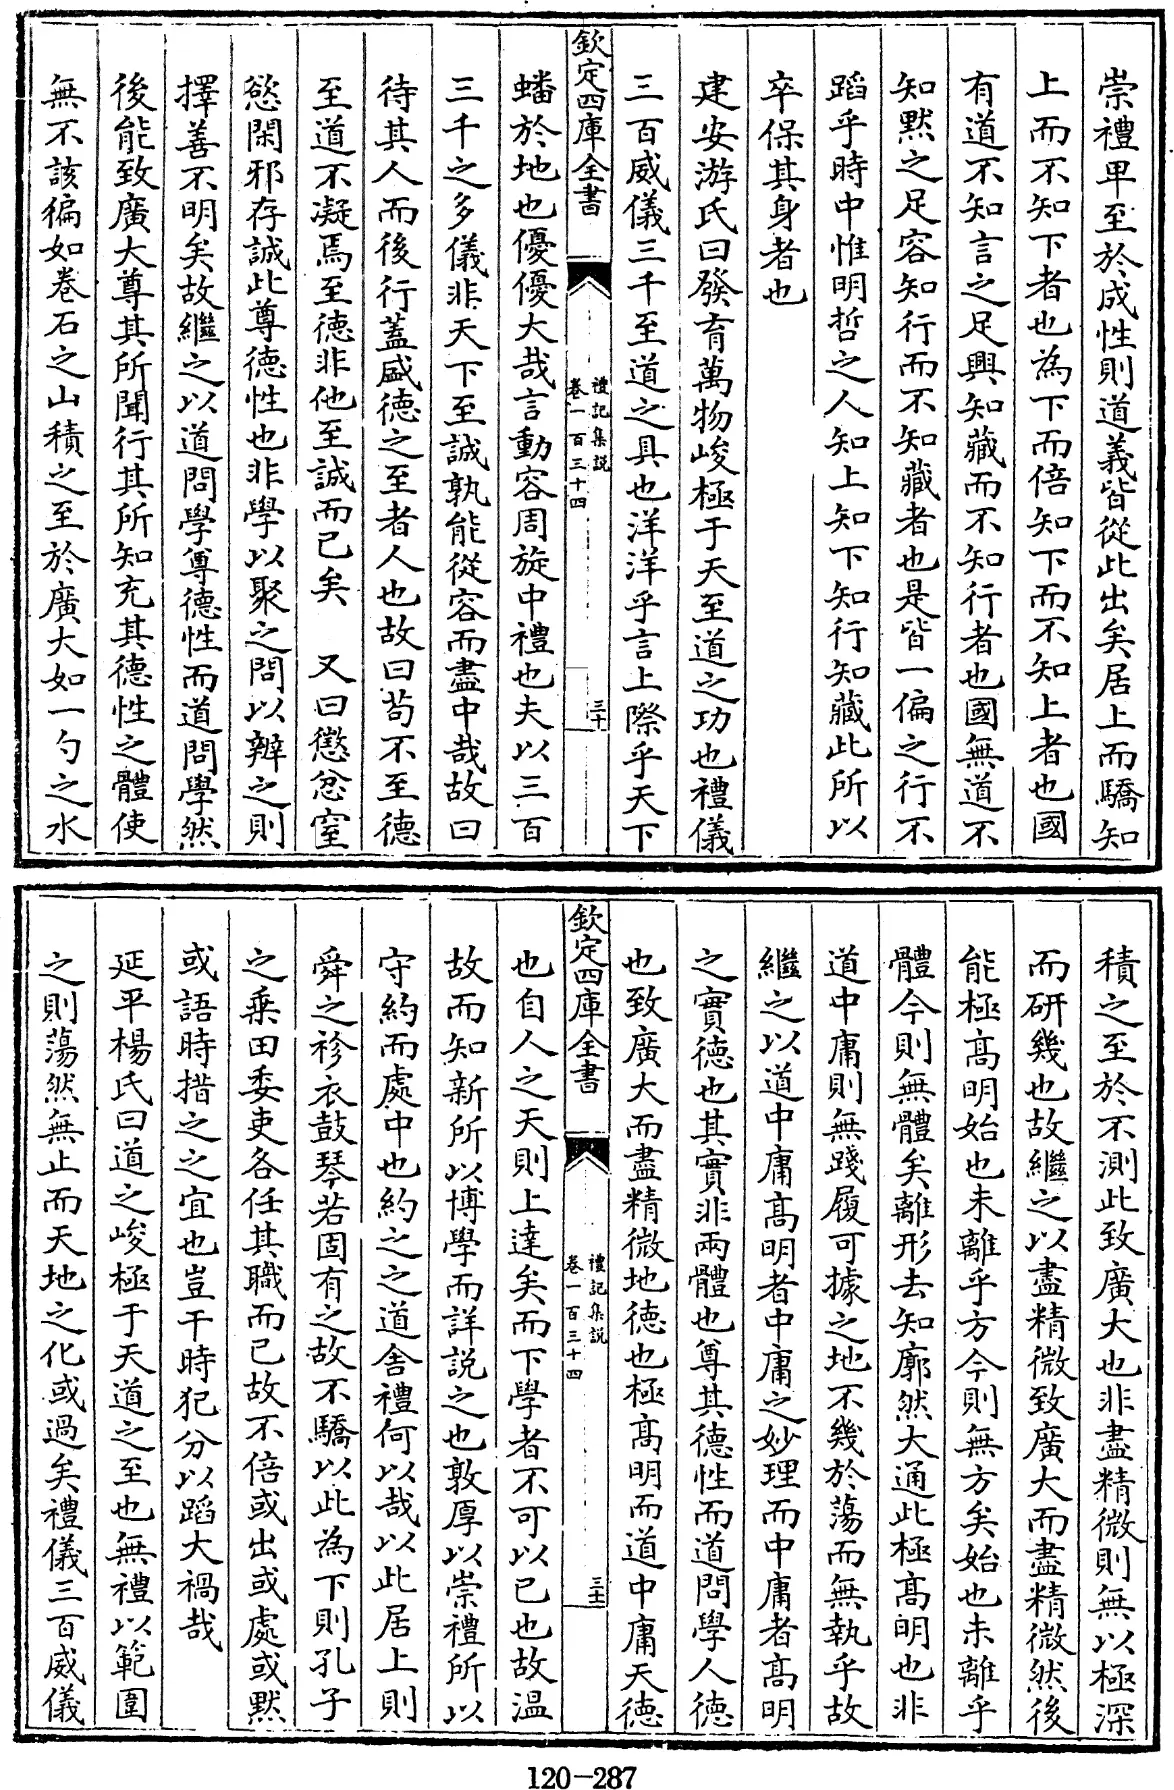 崇禮卑至於成性則道義皆從此出矣居上而驕知
上而不知下者也為下而倍知下而不知上者也國
有道不知言之足興知藏而不知行者也國無道不
知黙之足容知行而不知藏者也是皆一偏之行不
蹈乎時中惟明哲之人知上知下知行知藏此所以
卒保其身者也
建安游氏曰發育萬物峻極于天至道之功也禮儀
三百威儀三千至道之具也洋洋乎言上際乎天下
欽定四庫全書
禮記集説
卷一百三十四
三十
蟠於地也優優大哉言動容周旋中禮也夫以三百
三千之多儀非天下至誠孰能從容而盡中哉故曰
待其人而後行蓋盛德之至者人也故曰苟不至德
至道不凝焉至德非他至誠而已矣 又曰懲忿窒
慾閑邪存誠此尊德性也非學以聚之問以辨之則
擇善不明矣故繼之以道問學尊德性而道問學然
後能致廣大尊其所聞行其所知充其德性之體使
無不該徧如卷石之山積之至於廣大如一勺之水
積之至於不測此致廣大也非盡精微則無以極深
而研幾也故繼之以盡精微致廣大而盡精微然後
能極髙明始也未離乎方今則無方矣始也未離乎
體今則無體矣離形去知廓然大通此極髙明也非
道中庸則無踐履可據之地不幾於蕩而無執乎故
繼之以道中庸髙明者中庸之妙理而中庸者髙明
之實德也其實非兩體也尊其德性而道問學人德
也致廣大而盡精微地德也極髙明而道中庸天德
欽定四庫全書
禮記集説
卷一百三十四
三十一
也自人之天則上達矣而下學者不可以已也故温
故而知新所以博學而詳説之也敦厚以崇禮所以
守約而處中也約之之道舍禮何以哉以此居上則
舜之袗衣鼓琴若固有之故不驕以此為下則孔子
之乗田委吏各任其職而已故不倍或出或處或黙
或語時措之之宜也豈干時犯分以蹈大禍哉
延平楊氏曰道之峻極于天道之至也無禮以範圍
之則蕩然無止而天地之化或過矣禮儀三百威儀
120-287